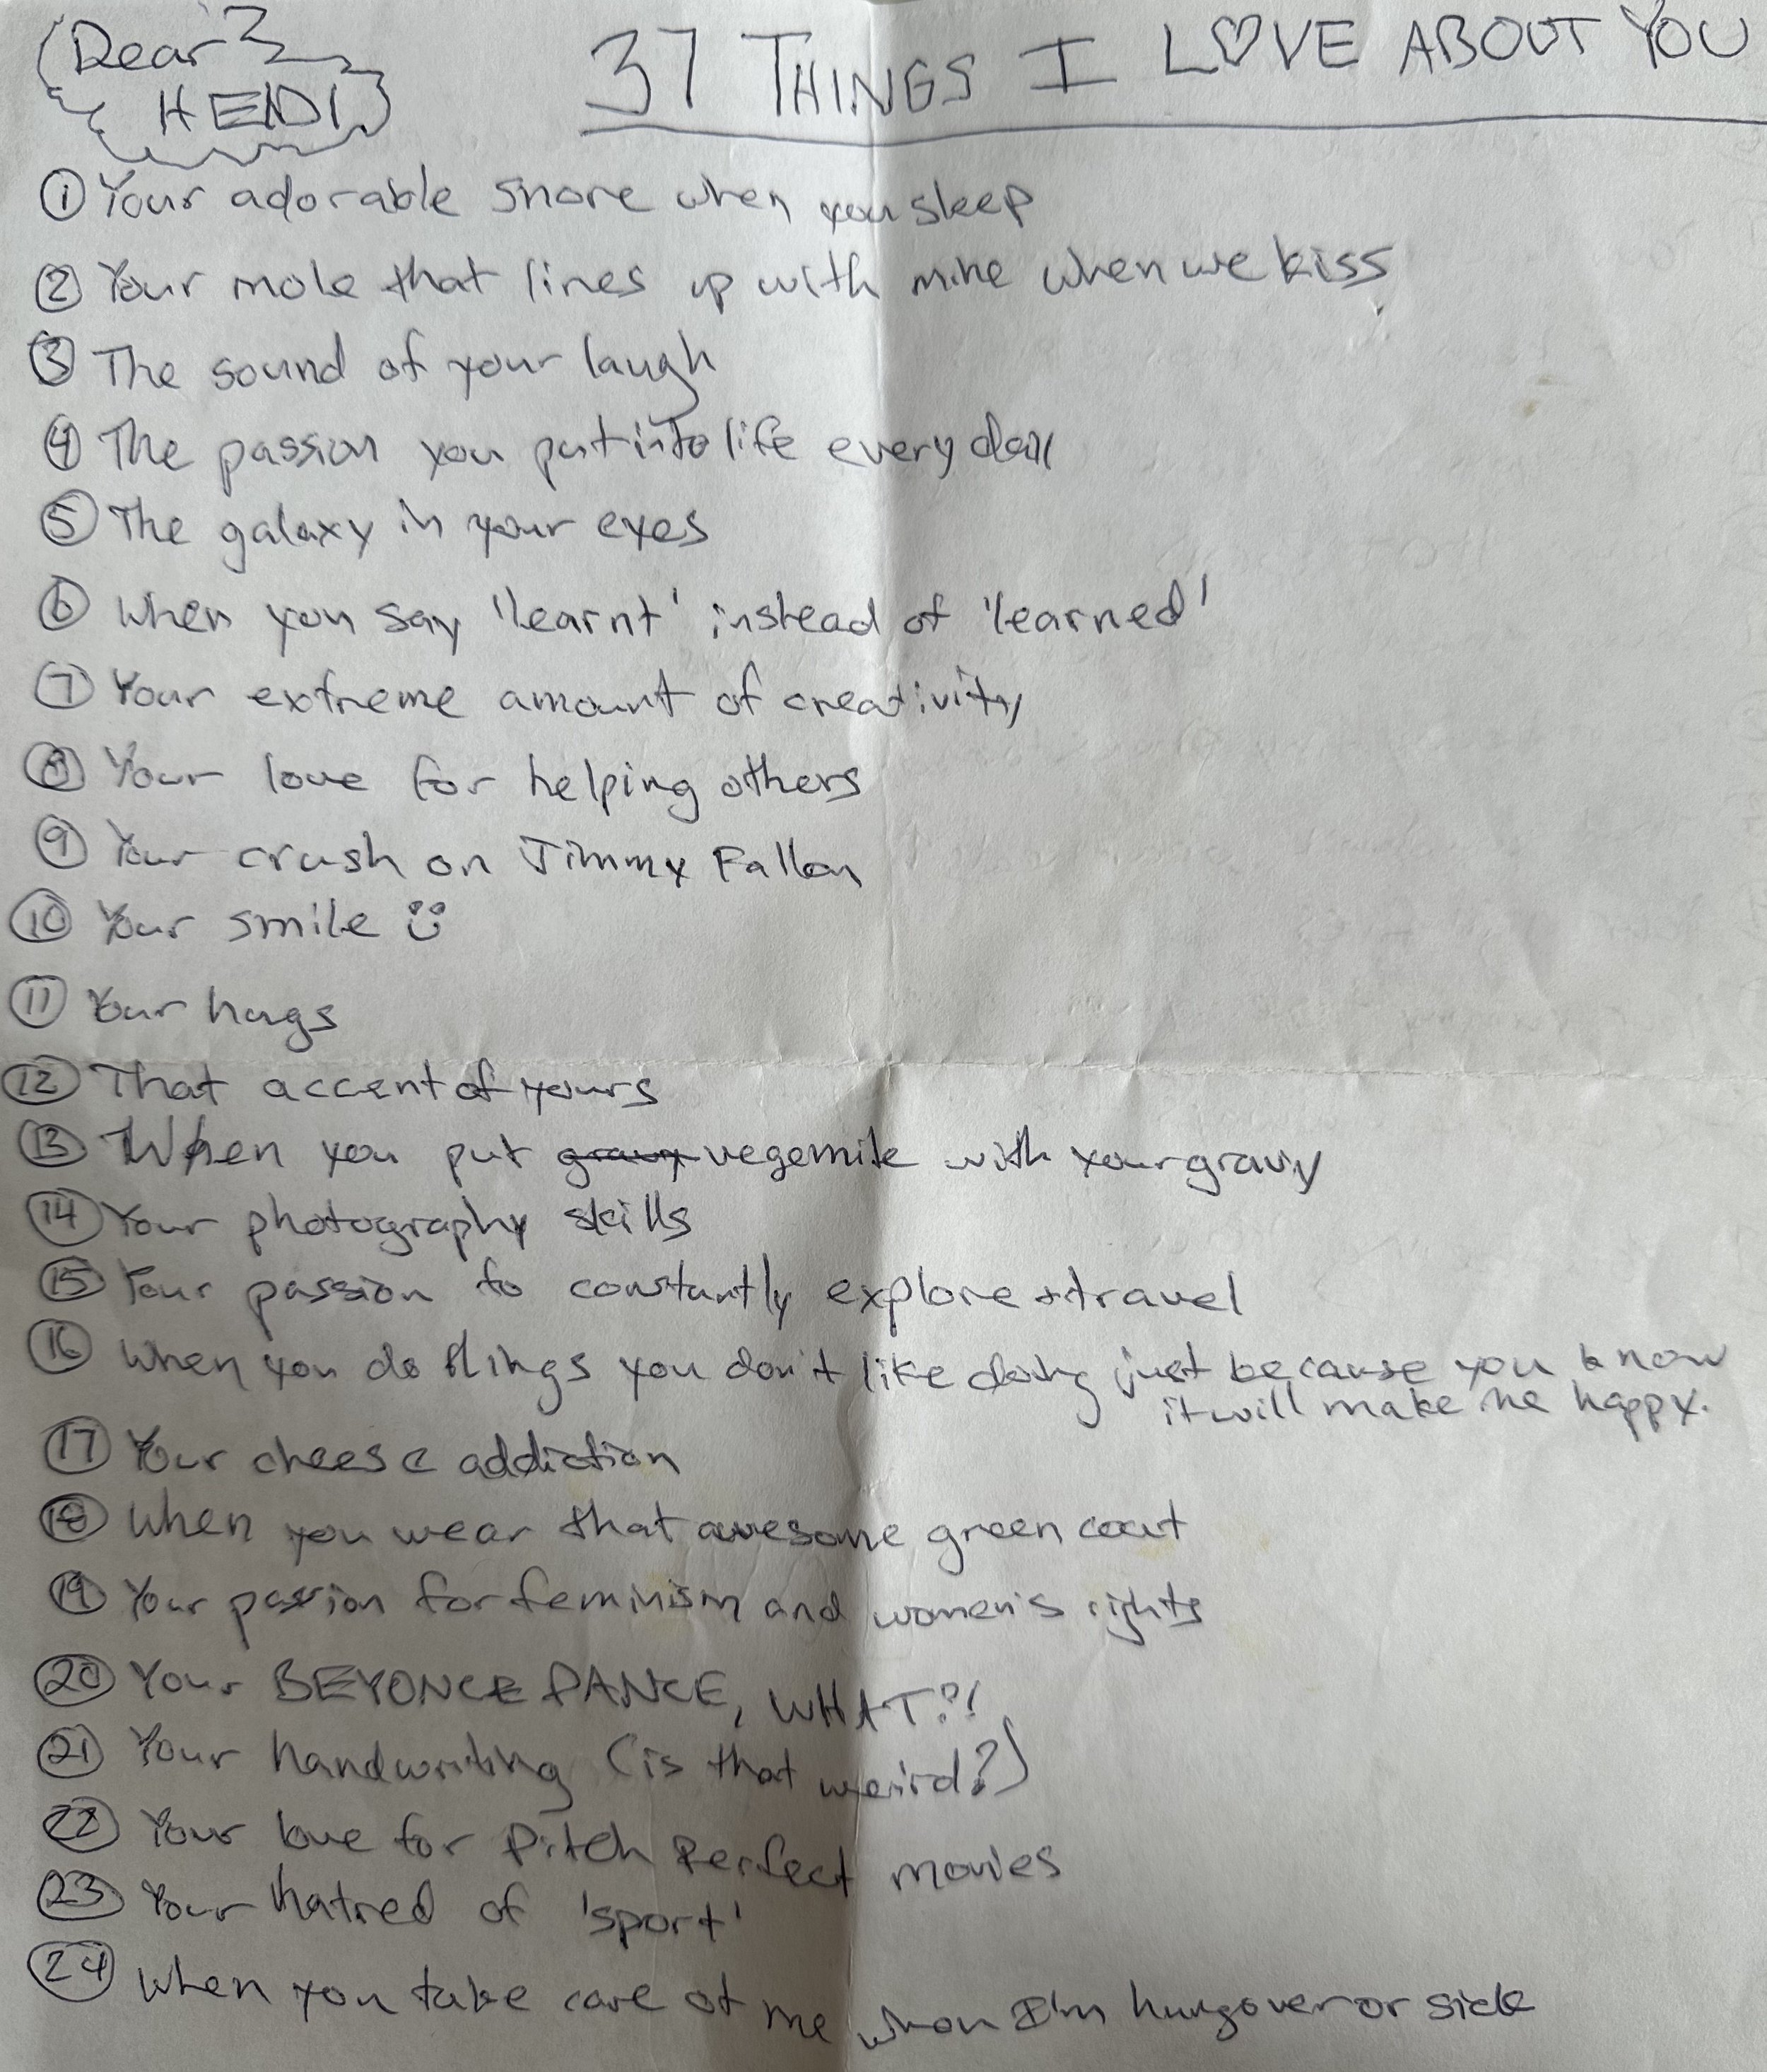 Dear
HEIDI
37 THINGS I LOVE ABOUT YOU
① Your adorable snore when you sleep
② Your mole that lines up with mine when we kiss
③ The sound of your laugh
④ The passion you put into life every day
⑤ The galaxy in your eyes
⑥ When you say 'learnt' instead of 'learned'
⑦ Your extreme amount of creativity
⑧ Your love for helping others
⑨ Your crush on Jimmy Fallon
⑩ Your smile
⑪ Your hugs
⑫ That accent of yours
⑬ When you put gravy vegemite with your gravy
⑭ Your photography skills
⑮ Your passion to constantly explore + travel
⑯ When you do things you don't like doing just because you know
it will make me happy.
⑰ Your cheese addiction
⑱ When you wear that awesome green coat
⑲ Your passion for feminism and women's rights
⑳ Your BEYONCE DANCE, WHAT?!
㉑ Your handwriting (is that weird?)
㉒ Your love for Pitch Perfect movies
㉓ Your hatred of 'sport'
㉔ When you take care of me when I'm hungover or sick